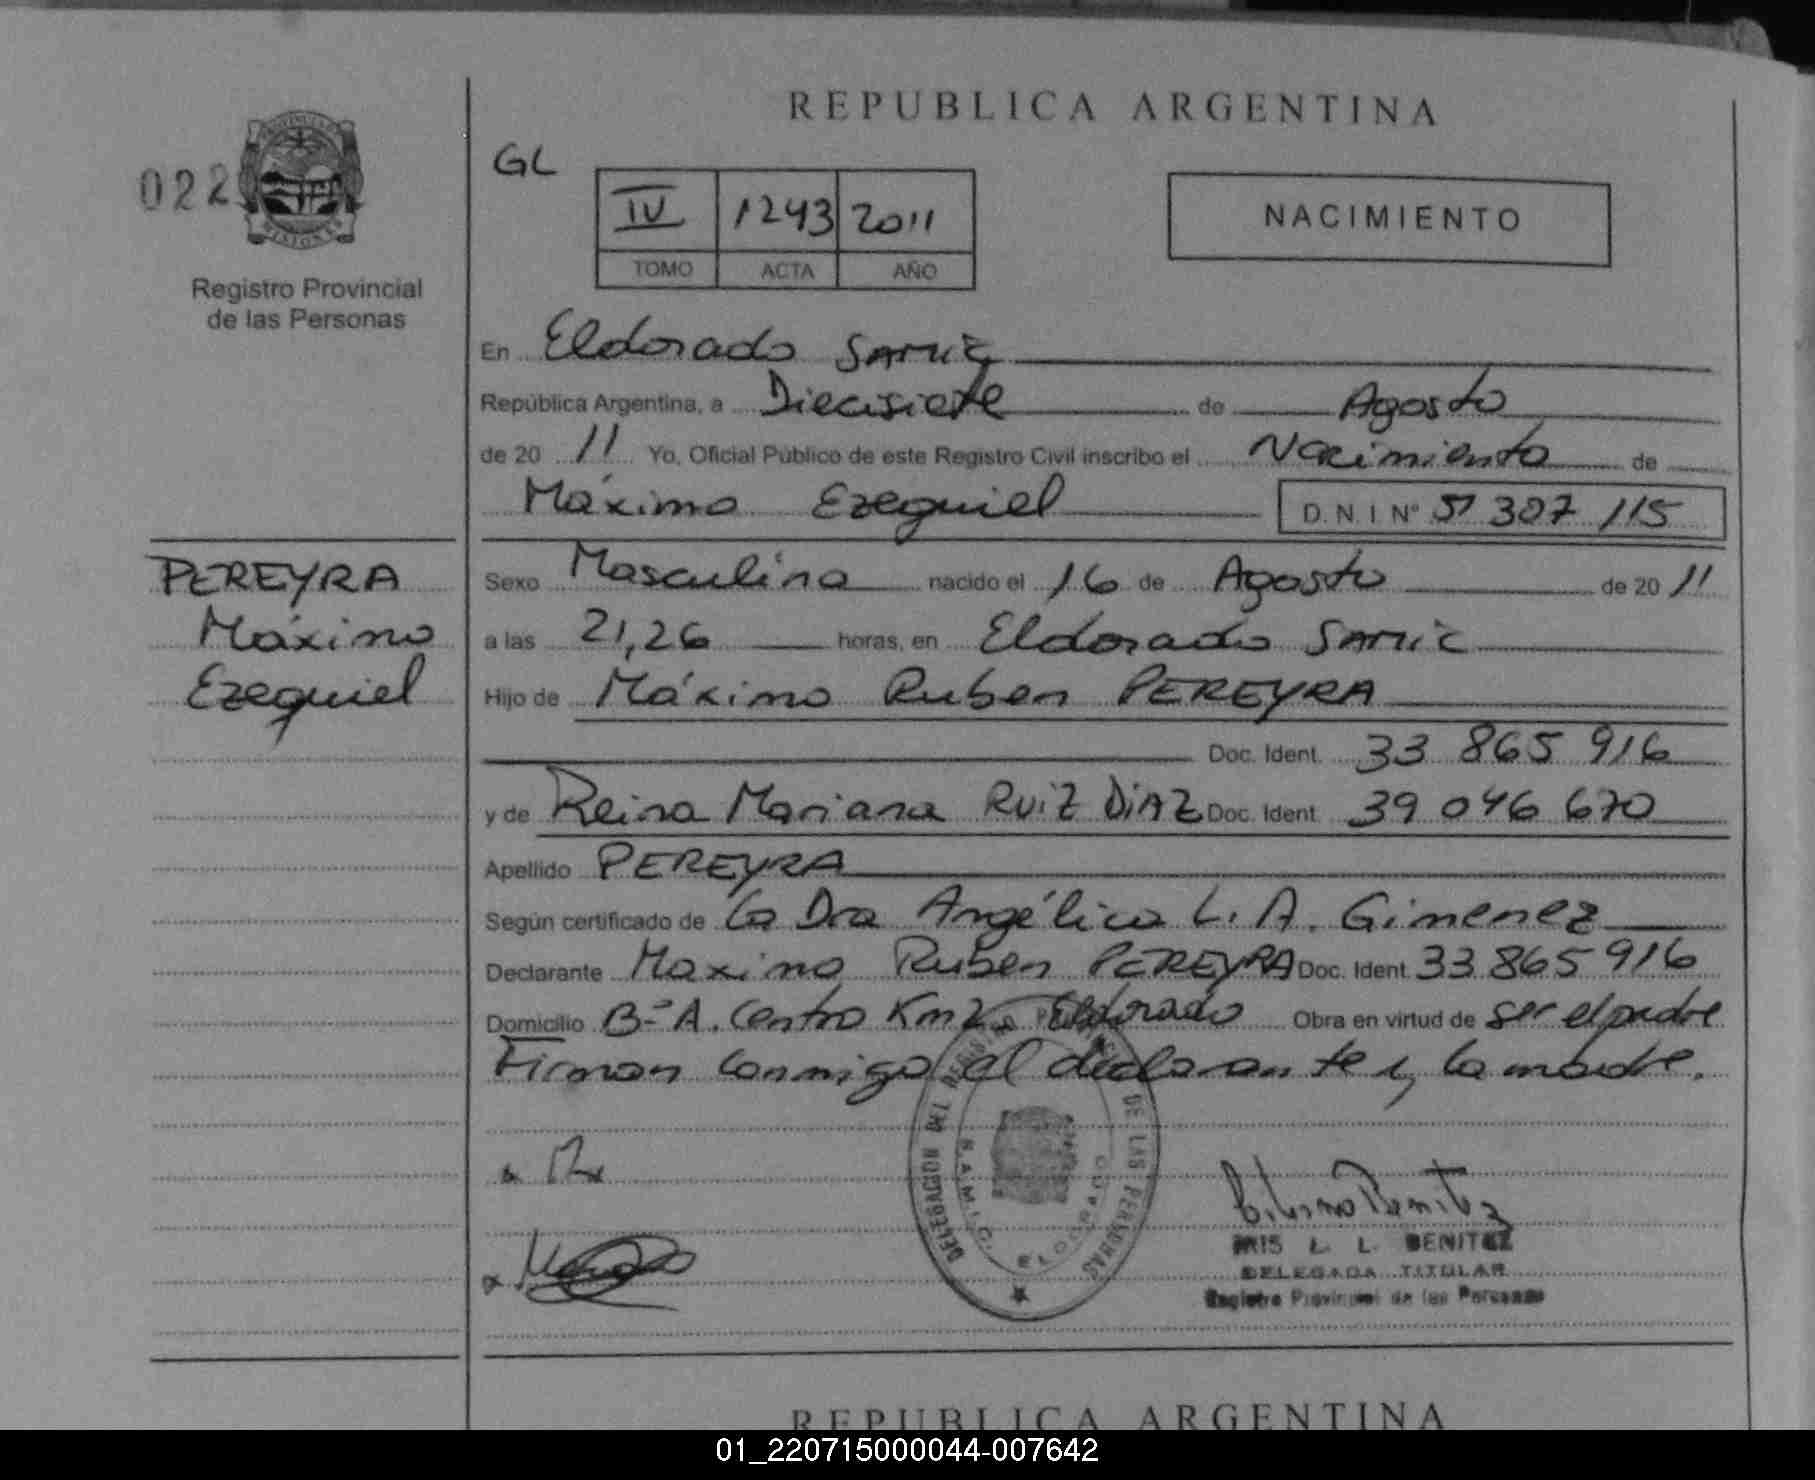 REPUBLICA ARGENTINA
022
PROVINCIA DE
MISIONES
Registro Provincial
de las Personas
GL
IV 1243 2011
TOMO ACTA AÑO
NACIMIENTO
En Eldorado SAMIC
República Argentina, a Diecisiete de Agosto
de 20 11 Yo, Oficial Público de este Registro Civil inscribo el Nacimiento de
Máximo Ezequiel D.N.I Nº 51 307 115
PEREYRA
Máximo
Ezequiel
Sexo Masculino nacido el 16 de Agosto de 20 11
a las 21,26 horas, en Eldorado SAMIC
Hijo de Máximo Ruben PEREYRA
Doc. Ident. 33 865 916
y de Reina Mariana RUIZ DIAZ Doc. Ident. 39 046 670
Apellido PEREYRA
Según certificado de La Dra Angélica L. A. Gimenez
Declarante Maximo Ruben PEREYRA Doc. Ident. 33 865 916
Domicilio Bº A. Centro Km 2 Eldorado Obra en virtud de ser el padre
Firman conmigo el declarante y la madre.
DELEGACION DEL REGISTRO PROVINCIAL DE LAS PERSONAS
S.A.M.I.C. ELDORADO
IRIS L. L. BENITEZ
DELEGADA TITULAR
Registro Provincial de las Personas
REPUBLICA ARGENTINA
01_220715000044-007642